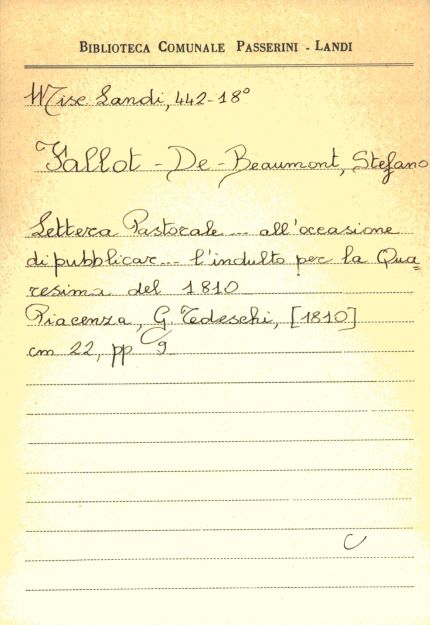 BIBLIOTECA COMUNALE PASSERINI - LANDI
Misc Landi, 442-18°
Fallot - De - Beaumont, Stefano
Lettera Pastorale ... all'occasione
di pubblicar... l'indulto per la Qua=
resima del 1810
Piacenza, G. Tedeschi, [1810]
cm 22, pp 9
C